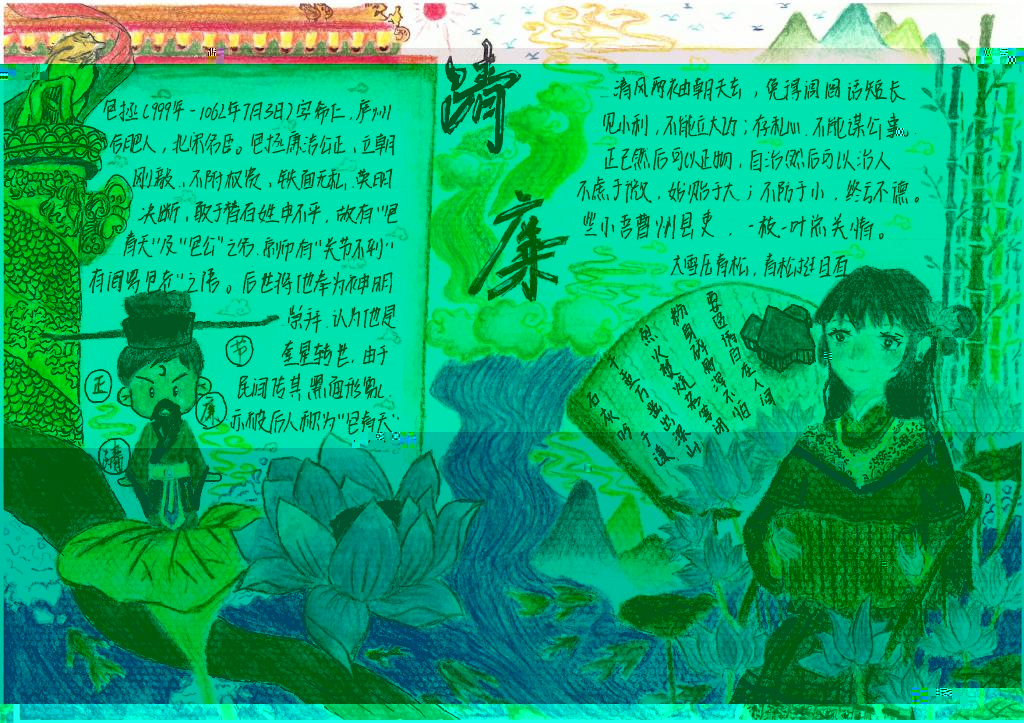 包拯(999年-1062年7月3日)字希仁,庐州
合肥人,北宋名臣。包拯廉洁公正、立朝
刚毅,不附权贵,铁面无私,英明
决断,敢于替百姓申不平,故有"包
青天"及"包公"之名,京师有"关节不到,
有阎罗包老"之语。后世将他奉为神明
崇拜,认为他是
奎星转世,由于
民间传其黑面形象,
亦被后人称为"包青天"
正
节
廉
清
清
廉
清风两袖朝天去,免得闾阎话短长
见小利,不能立大功;存私心,不能谋公事。
正己然后可以正物,自治然后可以治人
不虑于微,始贻于大;不防于小,终亏不德。
些小吾曹州县吏,一枝一叶总关情。
大雪压青松,青松挺且直
石灰吟 于谦
千锤万凿出深山
烈火焚烧若等闲
粉身碎骨浑不怕
要留清白在人间